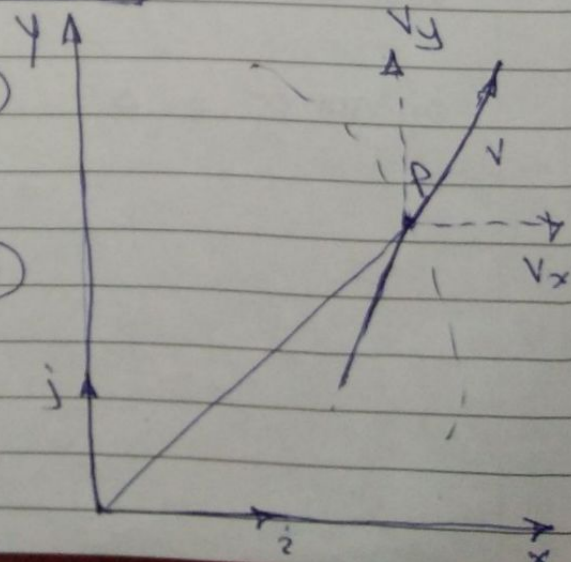 y
Vy
V
P
Vx
j
i
x